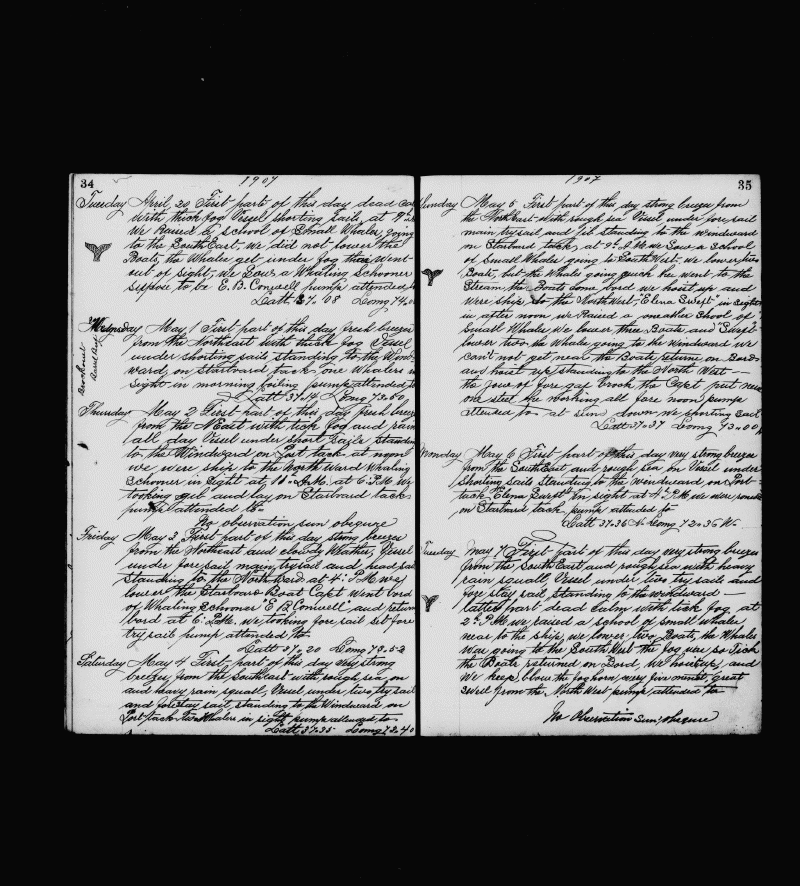 34
1907
Tuesday April 30 First part of this day dead
with thick fog Vesel shorting sails, at
We Raised a School of Small Whales going
to the South East, we did not lower the
Boats, the Whales get under fog went
out of sight, we Saw a Whaling Schooner
suppose to be E. B. Conwell pump attended
Latt. 37.08 Long 74.0
Wednesday May 1 First part of this day fresh breezes
from the Northeast with thick fog Vessel
under shorting sails standing to the Wind
ward, on Starboard tack one Whalers in
sight in morning pump attended to
Latt 37.14 Long 73.50
Thursday May 2 First part of this day fresh breeze
from the N East with tick fog and rain
all day Vesel under short sails standing
to the Windward on Port tack at
we were ship to the North Ward Whaling
Schooner in sight at 11 A.M. at 6 P.M We
tooking gib and lay on Starboard tack
pump attended to
No observation sun obsqure
Friday May 3 First part of this day strong breezes
from the Northeast and clowdy Wather, Vessel
under fore sail main, try sail and head sail
Standing to the North Ward at 4 P.M we
lower the Starboard Boat Capt Went bord
of Whaling Schooner "E B Conwell" and return
bord at 6 we tooking fore sail set fore
try sail pump attended to
Latt 37.20 Long 73.52
Saturday May 4 First part of this day very strong
breezes, from the Southeast with rough sea, on
and heavy rain squall, Vesel under two, try sail
and fore stay sail, standing to the Windward on
Port tack two Whalers in sight pump attended to
Latt 37.35 Long 73.40
1907
35
Sunday May 5 First part of this day strong breezes from
the North East with rough sea Vesel under fore sail
main try sail and jib standing to the windward
on Starbord tack, at 9 A.M. We Saw a School
of Small Whales going to South West. we lower two
Boats, but the Whales going quick he went to the
Stream the Boats come bord we hoist up and
were ship, to the North West "Elena Swept" in sight
in after noon we Raised a School of
Small Whales We lower three Boats and Swept
lower two the Whales going to the Windward we
can't not get near the Boats return on Bord
and hoist up standing to the North West —
the jows of fore gaf brook the Capt put new
one steet he working all fore noon pump
attended to at Sun down We shorting Sail
Latt 37.37 Long 73.00
Monday May 6 First part of this day very strong breezes
from the South East and rough sea on Vesel under
Shorting Sails standing to the windward on Port
tack "Elena Swept" In sight at 4 P.M we were
on Starbord tack, pump attended to
Latt 37.36 N. Long 72.36 W.
Tuesday May 7 First part of this day very strong breezes
from the South East and rough sea with heavy
rain squall, Vessel under two try sails and
fore stay sail standing to the windward —
latter part dead Calmy with tick fog, at
2 P.M we raised a school of small Whales
near to the ship, we lower two Boats, the Whales
was going to the South West the fog was so Tick
the Boats returned on Bord, we hoist up, and
We keep, blow the foghorn, every five minut, great
Swell from the North West pump attended to
No Observation Sun; obsqure